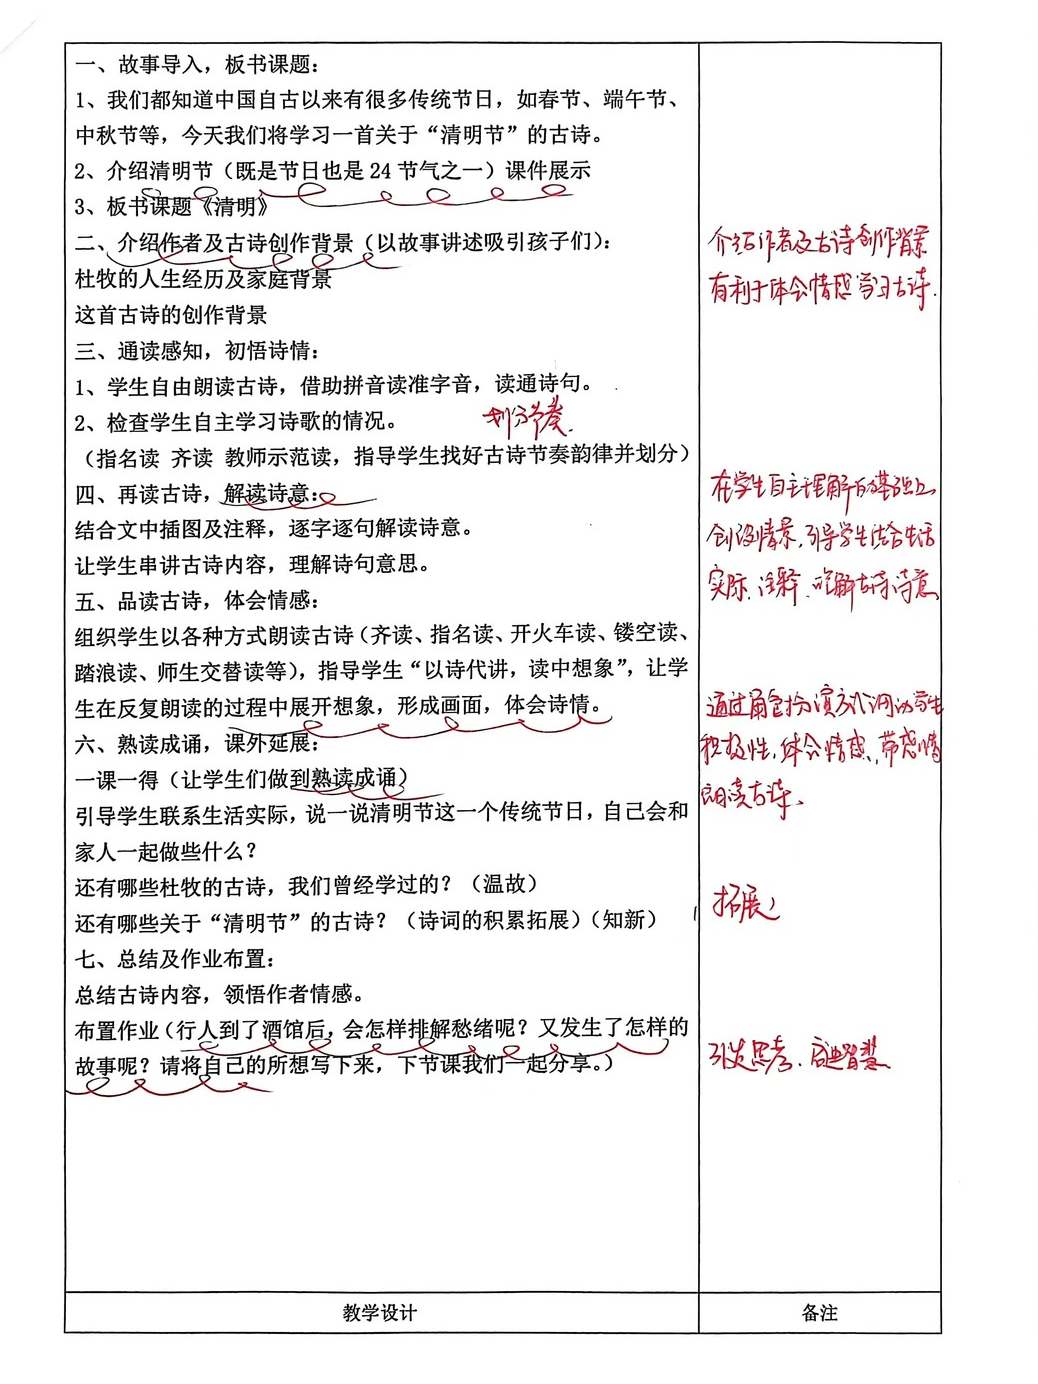 一、故事导入，板书课题：
1、我们都知道中国自古以来有很多传统节日，如春节、端午节、
中秋节等，今天我们将学习一首关于“清明节”的古诗。
2、介绍清明节（既是节日也是 24 节气之一）课件展示
3、板书课题《清明》
二、介绍作者及古诗创作背景（以故事讲述吸引孩子们）：
杜牧的人生经历及家庭背景
这首古诗的创作背景
介绍作者及古诗创作背景
有利于体会情感学习古诗.
三、通读感知，初悟诗情：
1、学生自由朗读古诗，借助拼音读准字音，读通诗句。
2、检查学生自主学习诗歌的情况。
划分节奏.
（指名读 齐读 教师示范读，指导学生找好古诗节奏韵律并划分）
四、再读古诗，解读诗意：
结合文中插图及注释，逐字逐句解读诗意。
让学生串讲古诗内容，理解诗句意思。
在学生自主理解的基础上
创设情景,引导学生结合生活
实际、注释、理解古诗诗意
五、品读古诗，体会情感：
组织学生以各种方式朗读古诗（齐读、指名读、开火车读、镂空读、
踏浪读、师生交替读等），指导学生“以诗代讲，读中想象”，让学
生在反复朗读的过程中展开想象，形成画面，体会诗情。
通过角色扮演方式调动学生
积极性,体会情感、带感情
朗读古诗、
六、熟读成诵，课外延展：
一课一得（让学生们做到熟读成诵）
引导学生联系生活实际，说一说清明节这一个传统节日，自己会和
家人一起做些什么？
还有哪些杜牧的古诗，我们曾经学过的？（温故）
还有哪些关于“清明节”的古诗？（诗词的积累拓展）（知新）
拓展
七、总结及作业布置：
总结古诗内容，领悟作者情感。
布置作业（行人到了酒馆后，会怎样排解愁绪呢？又发生了怎样的
故事呢？请将自己的所想写下来，下节课我们一起分享。）
引发思考、启迪智慧
教学设计
备注